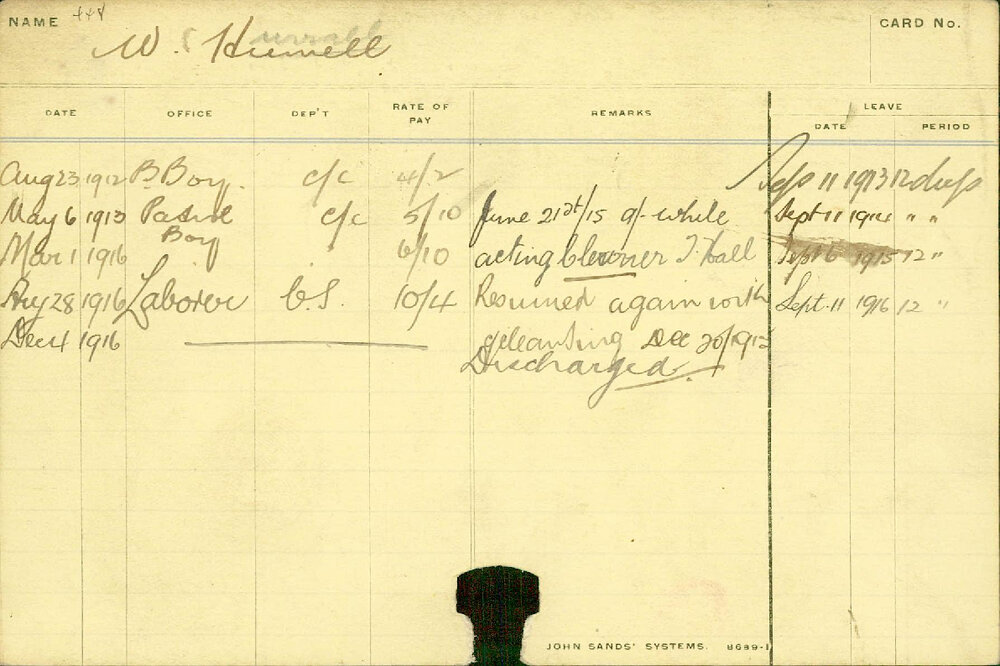 NAME 448 CARD No.
W. Hurrell
DATE OFFICE DEP'T RATE OF PAY REMARKS LEAVE
DATE PERIOD
Aug 23 1912 B. Boy c/c 4/2 Sept 11 1913 12 days
May 6 1913 c/c 5/10 June 21st/15 9/- while Sept 11 1914 " "
Boy
Mar 1 1916 6/10 acting Cleaner T. Hall Sept 6 1915 12 "
Aug 28 1916 Laborer C.S. 10/4 Resumed again with Sept. 11 1916 12 "
Dec 4 1916 cleansing Dec 20/1915
Discharged
JOHN SANDS' SYSTEMS. 8689-1